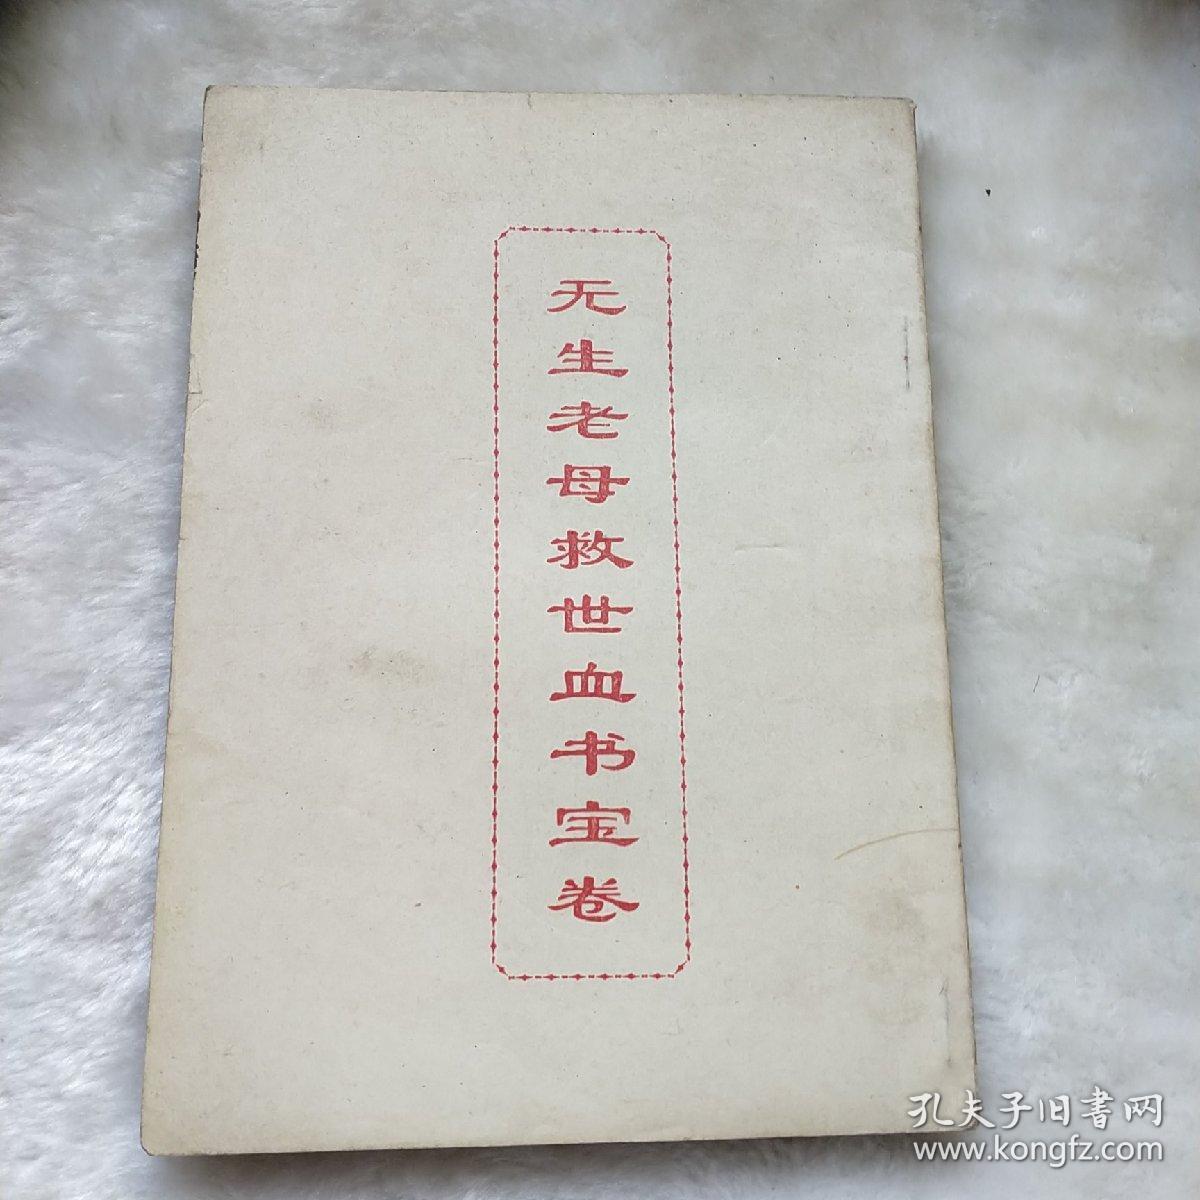 无生老母救世血书宝卷
孔夫子旧書网
www.kongfz.com